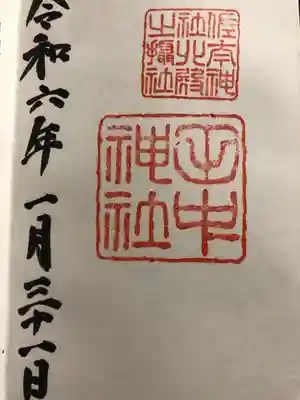 佐太神
社北殿
之攝社
田中
神社
令和六年一月三十一日